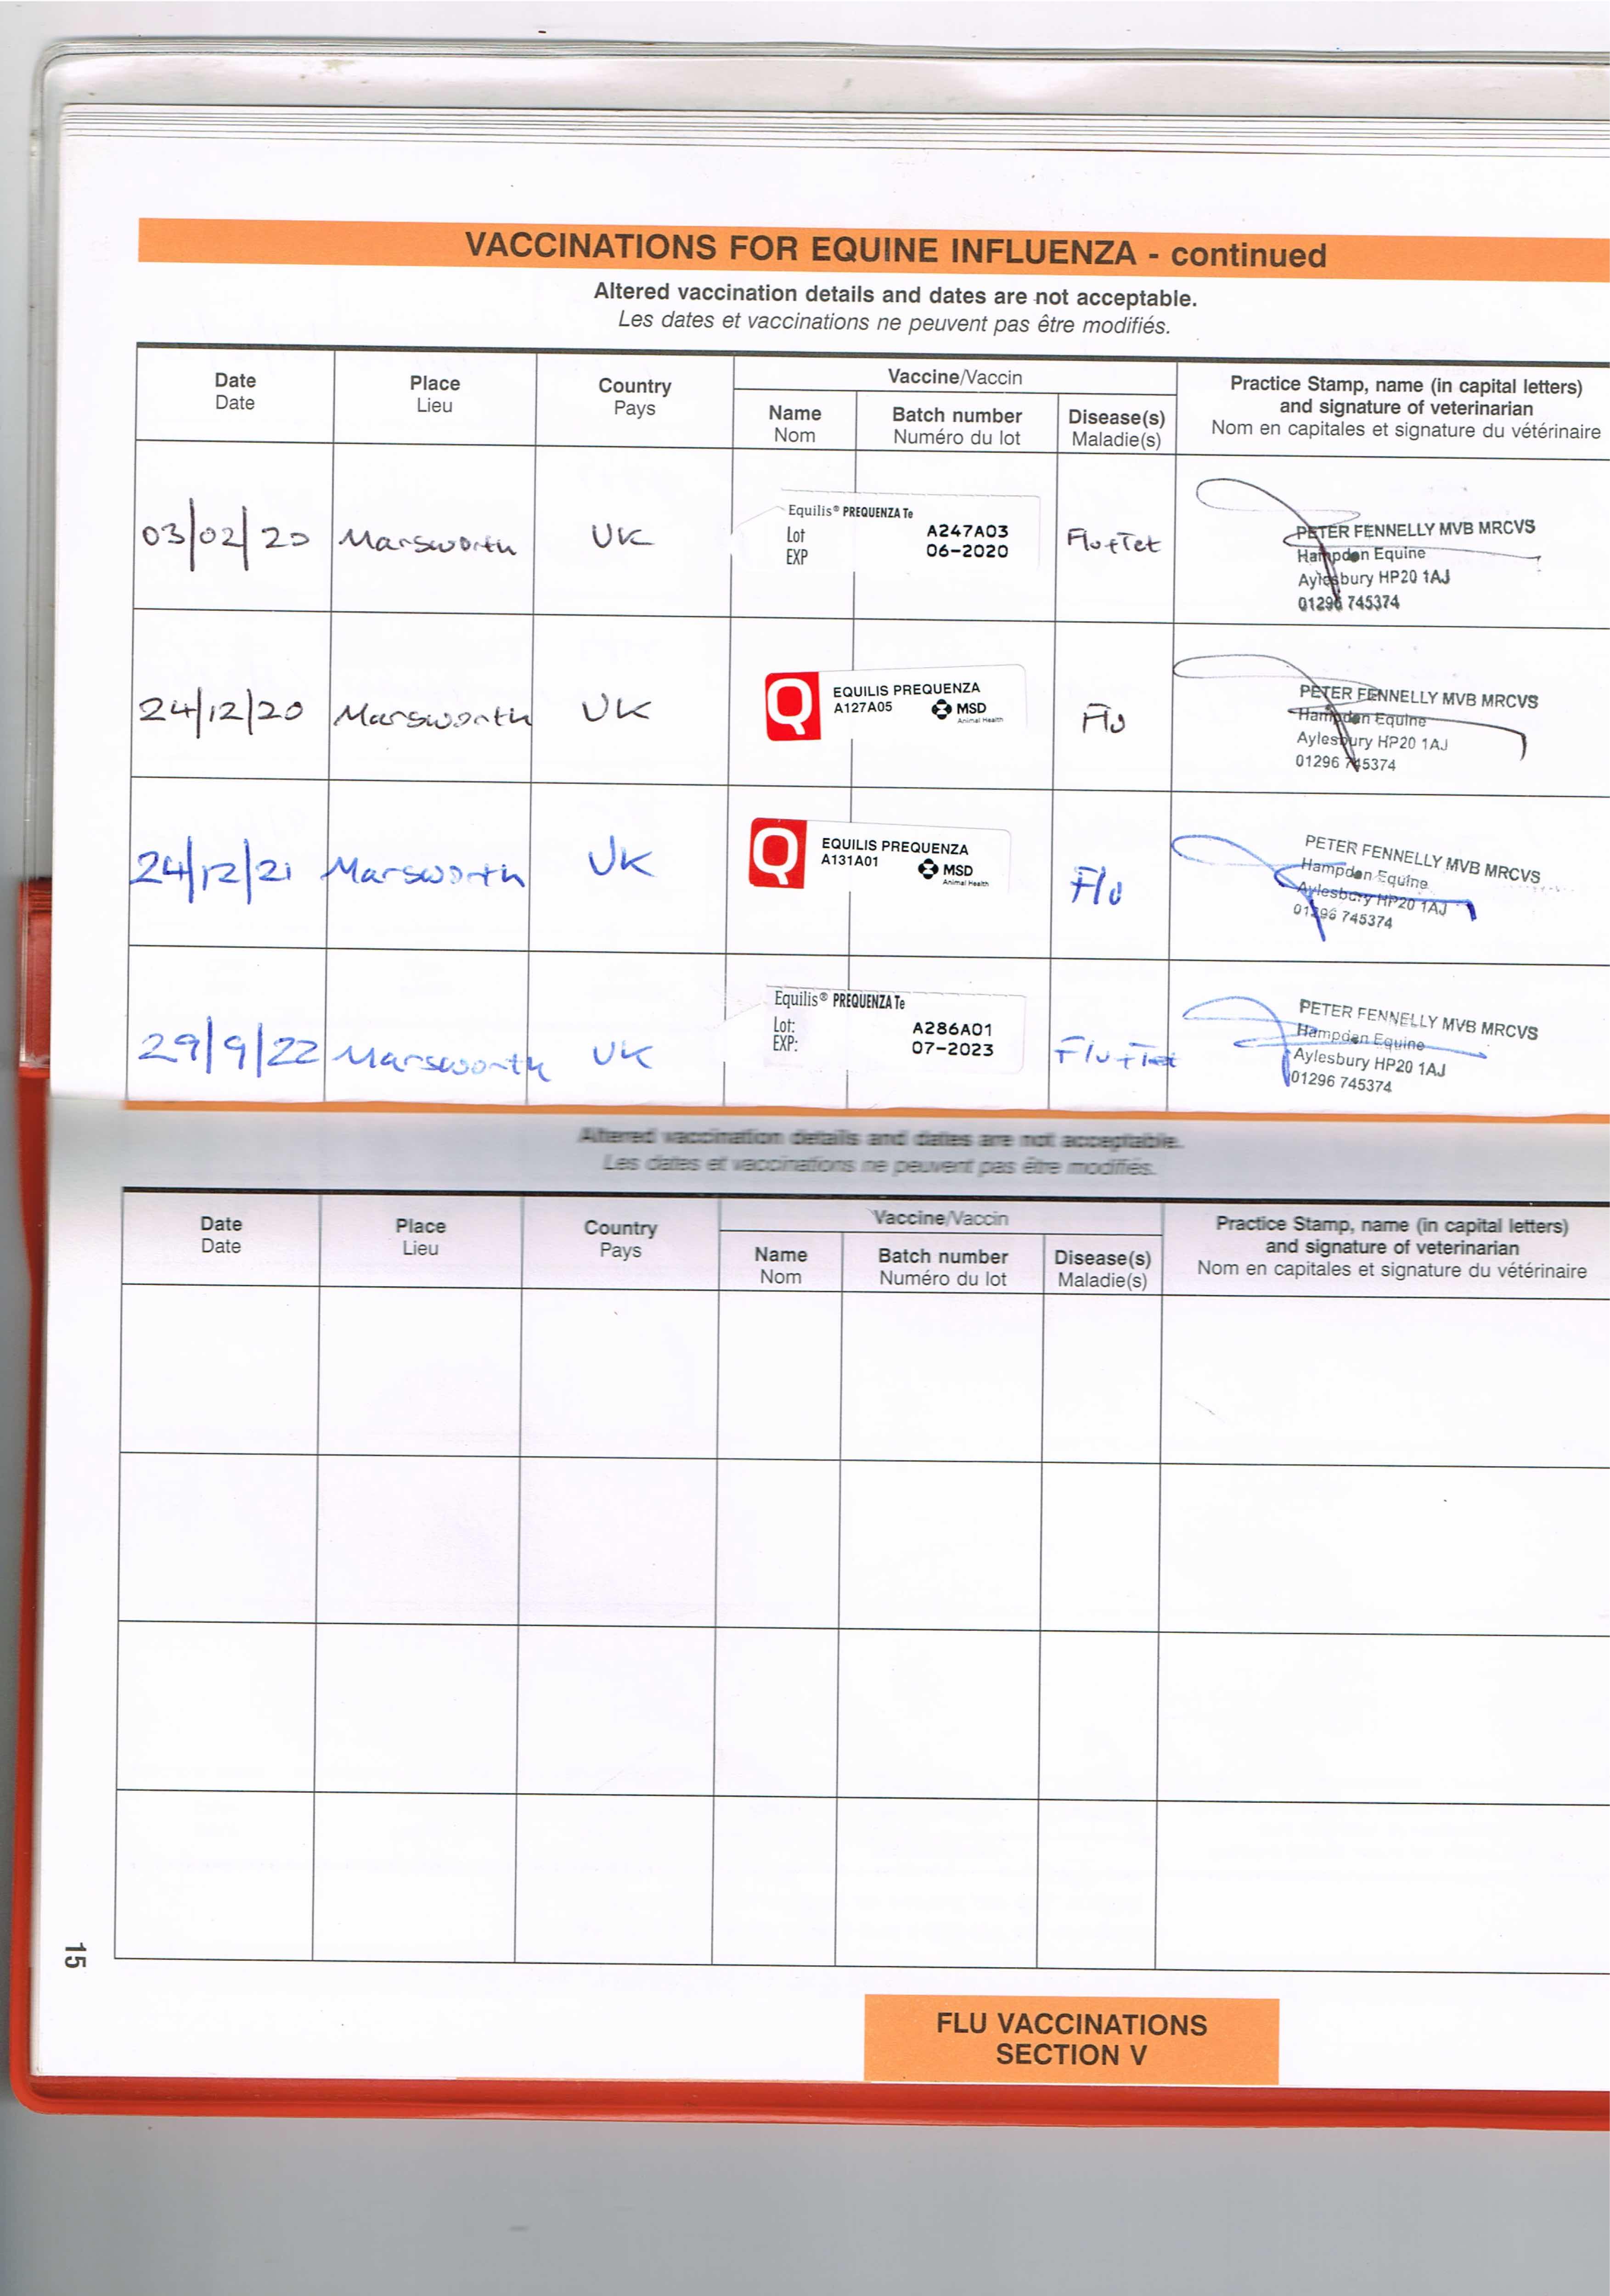 VACCINATIONS FOR EQUINE INFLUENZA - continued
Altered vaccination details and dates are not acceptable.
Les dates et vaccinations ne peuvent pas être modifiés.
Date
Date
Place
Lieu
Country
Pays
Vaccine/Vaccin
Name
Nom
Batch number
Numéro du lot
Disease(s)
Maladie(s)
Practice Stamp, name (in capital letters)
and signature of veterinarian
Nom en capitales et signature du vétérinaire
03/02/20
Marsworth
UK
Equilis® PREQUENZA Te
Lot A247A03
EXP 06-2020
Flu+Tet
PETER FENNELLY MVB MRCVS
Hampden Equine
Aylesbury HP20 1AJ
01296 745374
24/12/20
Marsworth
UK
Q
EQUILIS PREQUENZA
A127A05
MSD
Animal Health
Flu
PETER FENNELLY MVB MRCVS
Hampden Equine
Aylesbury HP20 1AJ
01296 745374
24/12/21
Marsworth
UK
Q
EQUILIS PREQUENZA
A131A01
MSD
Animal Health
Flu
PETER FENNELLY MVB MRCVS
Hampden Equine
Aylesbury HP20 1AJ
01296 745374
29/9/22
Marsworth
UK
Equilis® PREQUENZA Te
Lot: A286A01
EXP: 07-2023
Flu+Tet
PETER FENNELLY MVB MRCVS
Hampden Equine
Aylesbury HP20 1AJ
01296 745374
Altered vaccination details and dates are not acceptable.
Les dates et vaccinations ne peuvent pas être modifiés.
Date
Date
Place
Lieu
Country
Pays
Vaccine/Vaccin
Name
Nom
Batch number
Numéro du lot
Disease(s)
Maladie(s)
Practice Stamp, name (in capital letters)
and signature of veterinarian
Nom en capitales et signature du vétérinaire
15
FLU VACCINATIONS
SECTION V